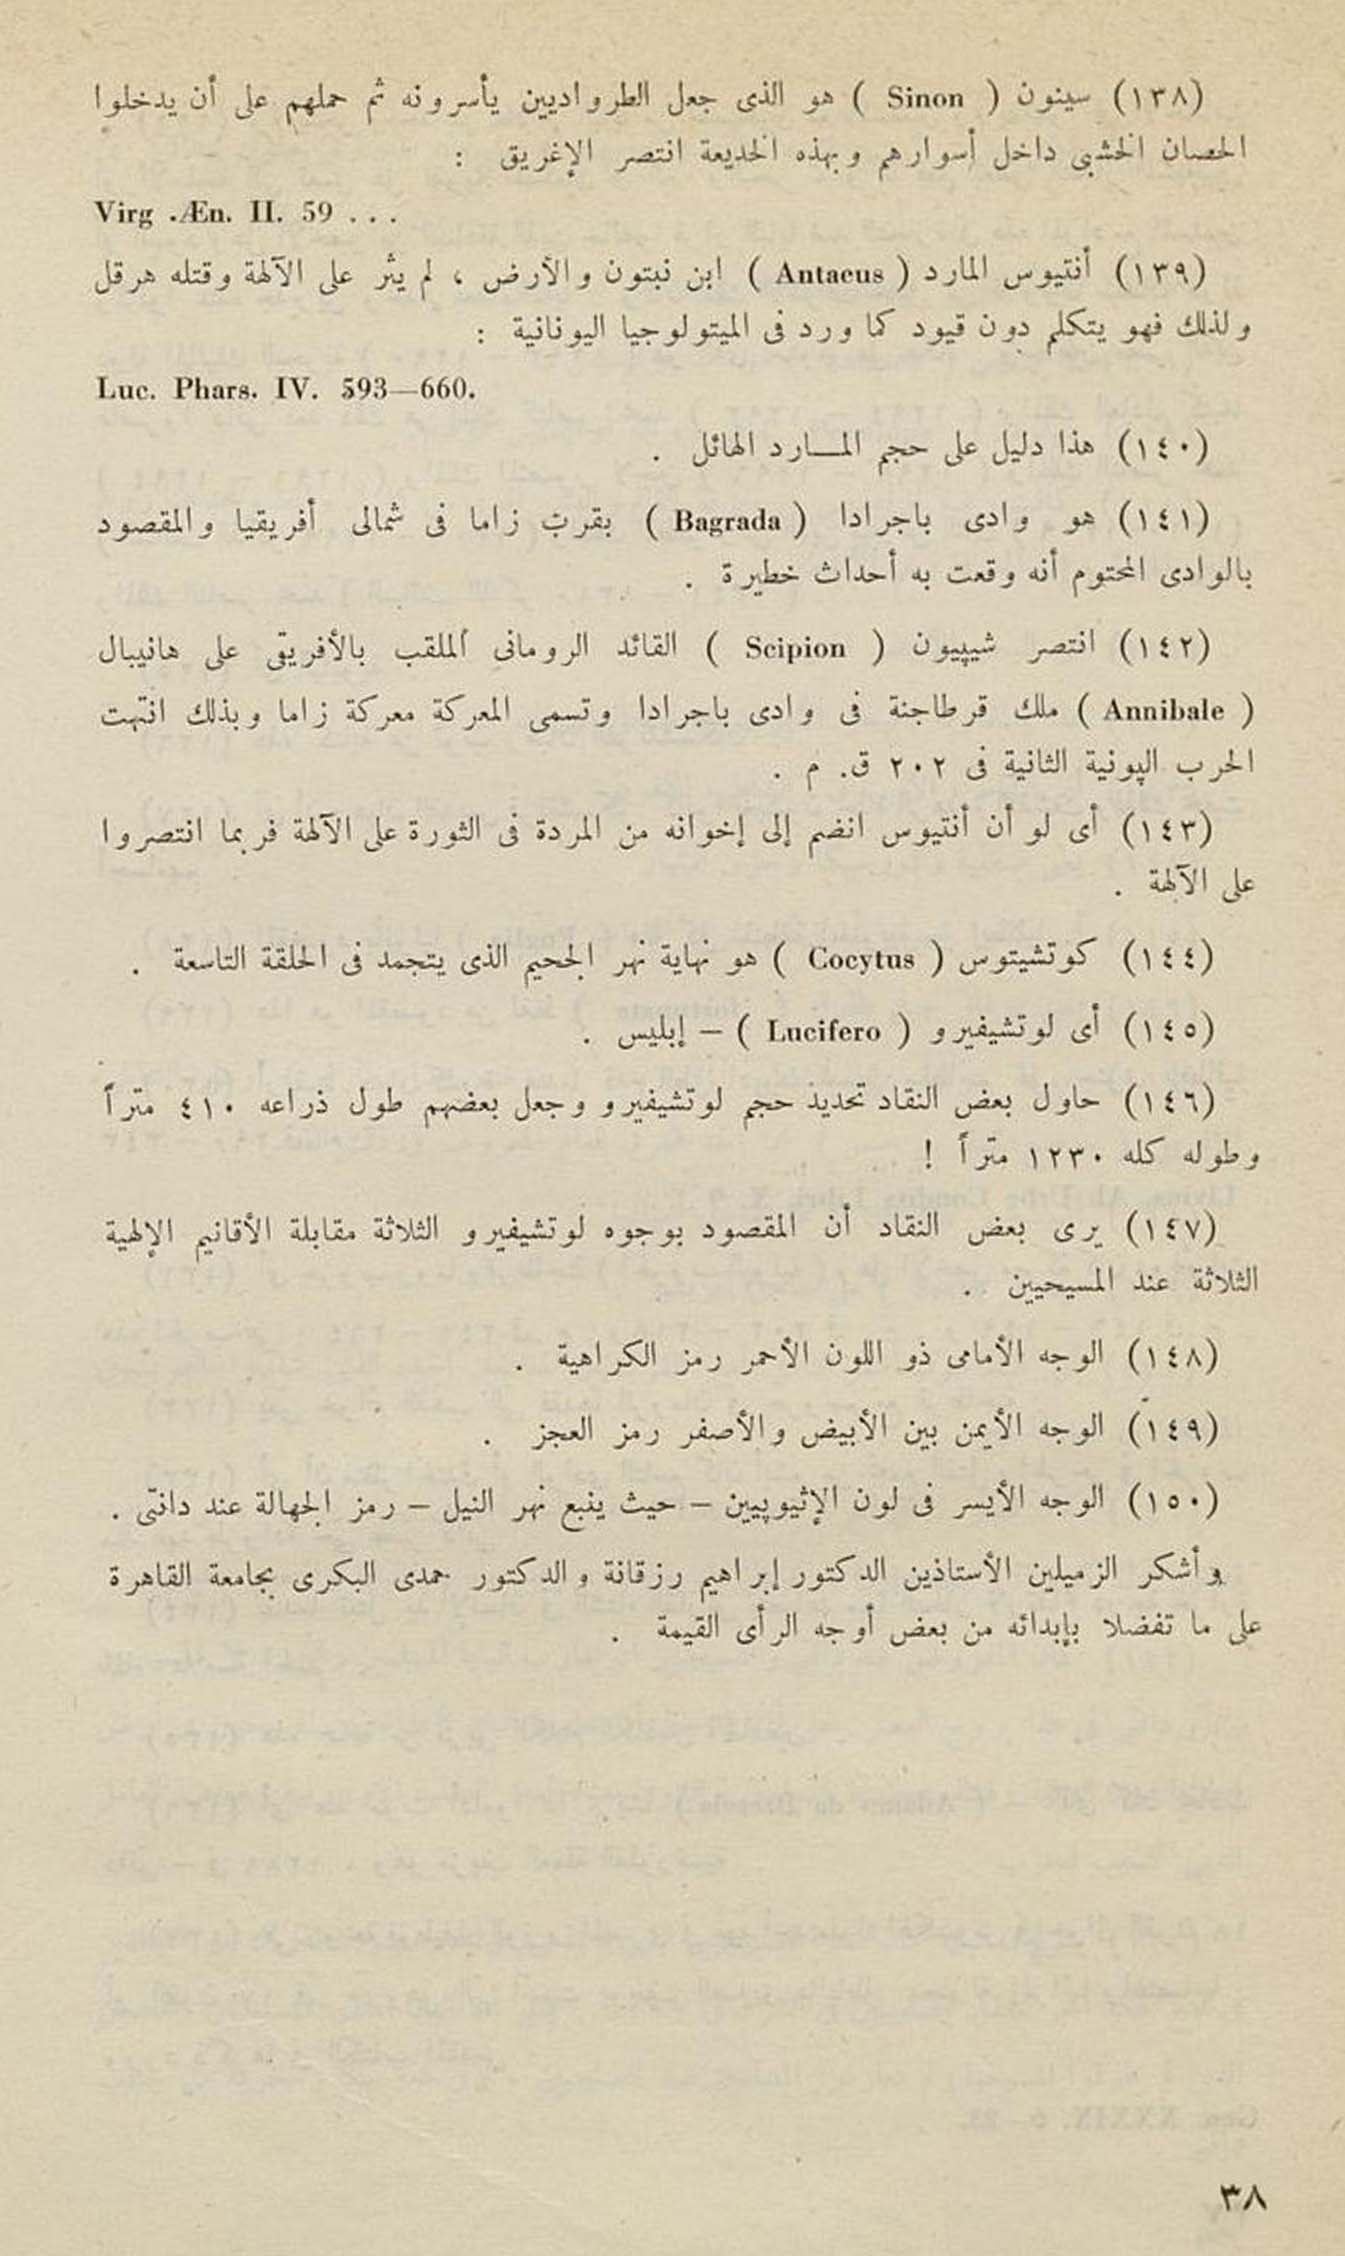 (١٣٨) سينون ( Sinon ) هو الذى جعل الطرواديين يأسرونه ثم حملهم على أن يدخلوا
الحصان الخشبى داخل أسوارهم وبهذه الخديعة انتصر الإغريق :
Virg .Æn. II. 59 . . .
(١٣٩) أنتيوس المارد ( Antaeus ) ابن نبتون والأرض ، لم يثر على الآلهة وقتله هرقل
ولذلك فهو يتكلم دون قيود كما ورد فى الميتولوجيا اليونانية :
Luc. Phars. IV. 593—660.
(١٤٠) هذا دليل على حجم المـارد الهائل .
(١٤١) هو وادى باجرادا ( Bagrada ) بقرب زاما فى شمالى أفريقيا والمقصود
بالوادى المحتوم أنه وقعت به أحداث خطيرة .
(١٤٢) انتصر شيپيون ( Scipion ) القائد الرومانى الملقب بالأفريقى على هانيبال
( Annibale ) ملك قرطاجنة فى وادى باجرادا وتسمى المعركة معركة زاما وبذلك انتهت
الحرب الپونية الثانية فى ٢٠٢ ق. م .
(١٤٣) أى لو أن أنتيوس انضم إلى إخوانه من المردة فى الثورة على الآلهة فربما انتصروا
على الآلهة .
(١٤٤) كوتشيتوس ( Cocytus ) هو نهاية نهر الجحيم الذى يتجمد فى الحلقة التاسعة .
(١٤٥) أى لوتشيفيرو ( Lucifero ) – إبليس .
(١٤٦) حاول بعض النقاد تحديد حجم لوتشيفيرو وجعل بعضهم طول ذراعه ٤١٠ متراً
وطوله كله ١٢٣٠ متراً !
(١٤٧) يرى بعض النقاد أن المقصود بوجوه لوتشيفيرو الثلاثة مقابلة الأقانيم الإلهية
الثلاثة عند المسيحيين .
(١٤٨) الوجه الأمامى ذو اللون الأحمر رمز الكراهية .
(١٤٩) الوجه الأيمن بين الأبيض والأصفر رمز العجز .
(١٥٠) الوجه الأيسر فى لون الإثيوپيين – حيث ينبع نهر النيل – رمز الجهالة عند دانتى .
وأشكر الزميلين الأستاذين الدكتور إبراهيم رزقانة والدكتور حمدى البكرى بجامعة القاهرة
على ما تفضلا بإبدائه من بعض أوجه الرأى القيمة .
٣٨